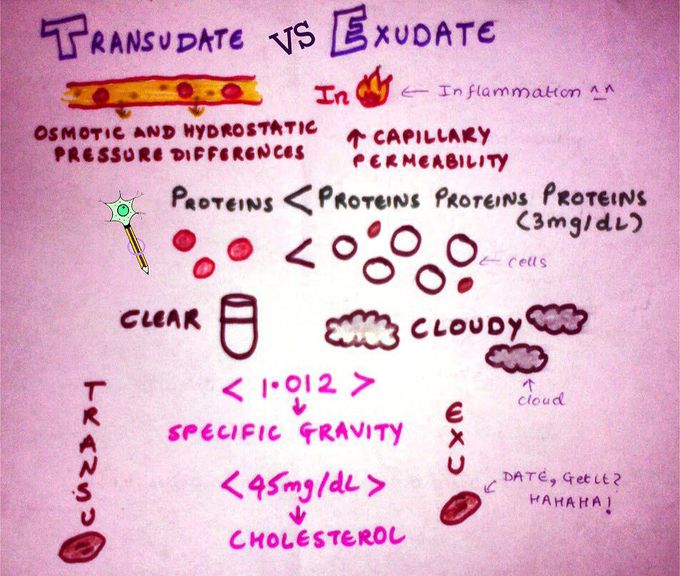 TRANSUDATE VS EXUDATE
In ← Inflammation ^_^
OSMOTIC AND HYDROSTATIC
PRESSURE DIFFERENCES
↑ CAPILLARY
PERMEABILITY
PROTEINS < PROTEINS PROTEINS PROTEINS
(3mg/dL)
<
← cells
CLEAR
CLOUDY
↑
cloud
< 1.012 >
↓
SPECIFIC GRAVITY
< 45mg/dL >
↓
CHOLESTEROL
TRANSU
EXU
DATE, Get it?
HAHAHA!